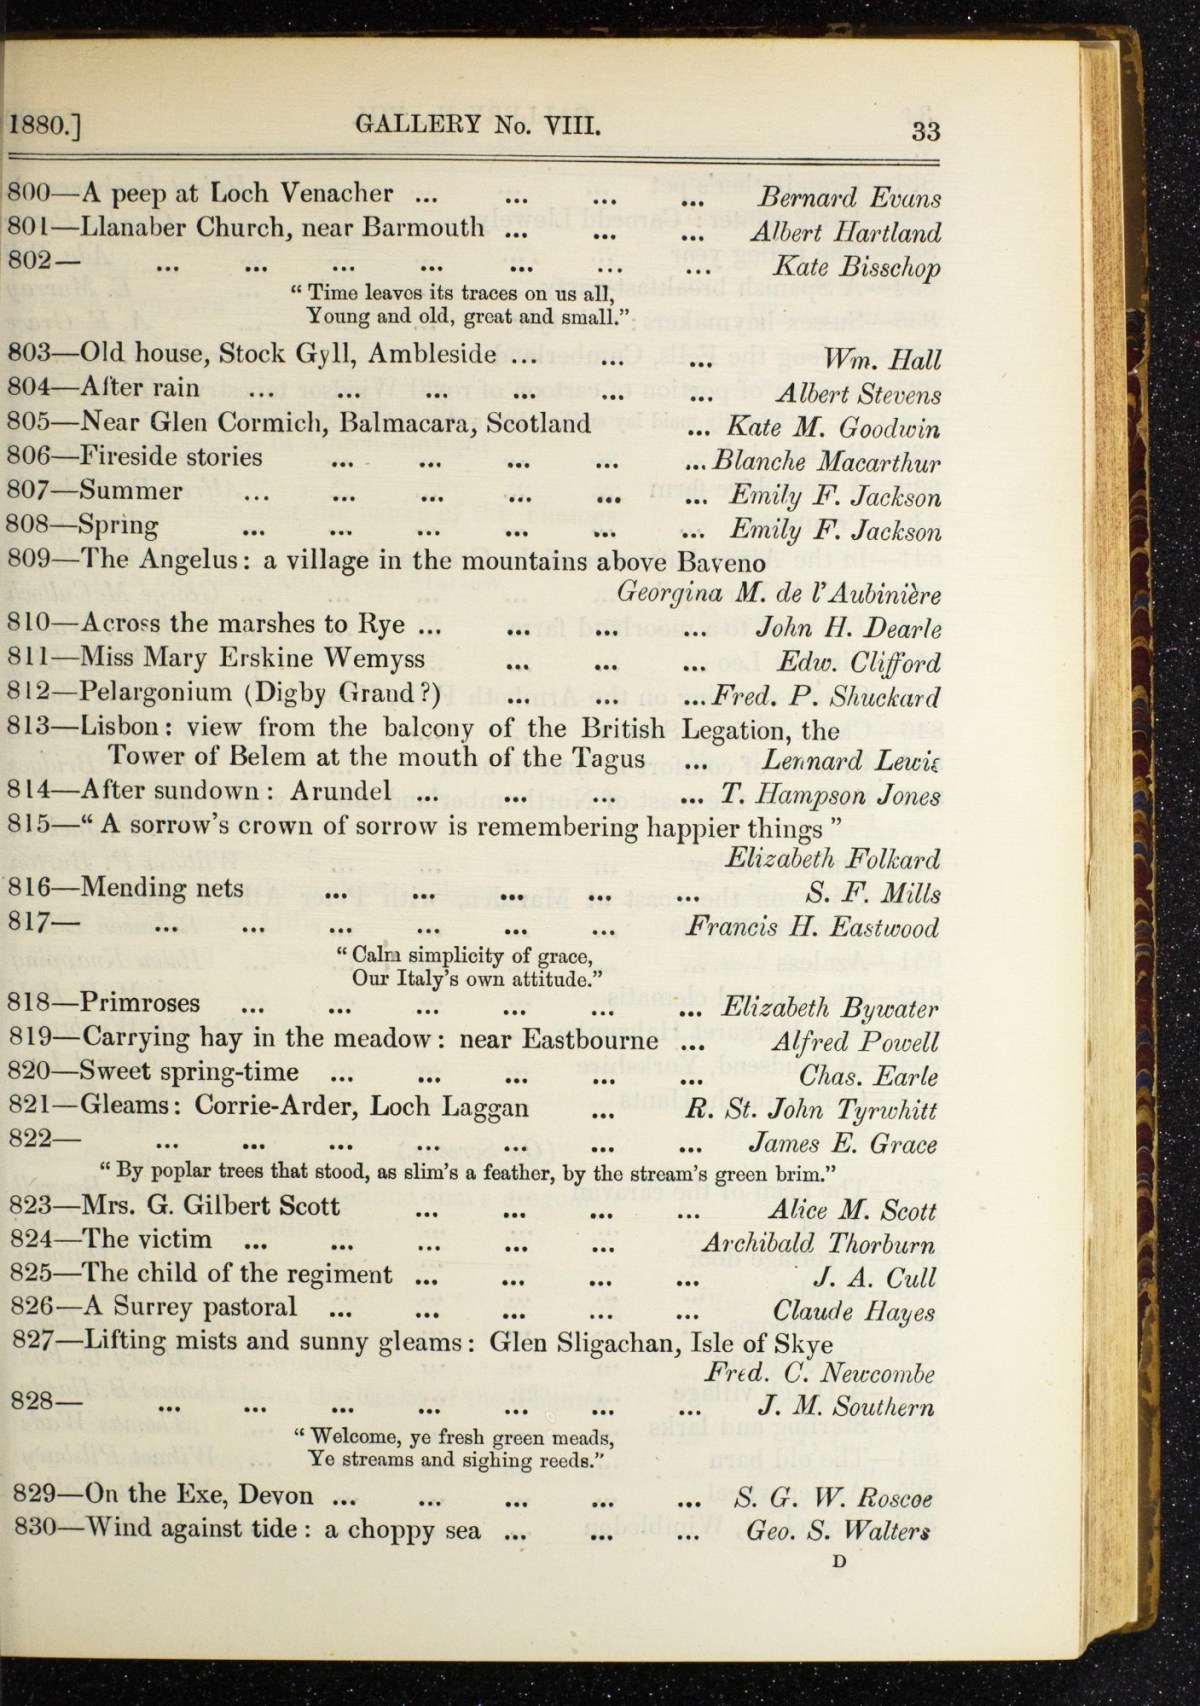 1880.] GALLERY No. VIII. 33
800—A peep at Loch Venacher ... ... ... ... Bernard Evans
801—Llanaber Church, near Barmouth ... ... ... Albert Hartland
802— ... ... ... ... ... ... ... Kate Bisschop
“ Time leaves its traces on us all,
Young and old, great and small.”
803—Old house, Stock Gyll, Ambleside ... ... ... Wm. Hall
804—After rain ... ... ... ... ... ... Albert Stevens
805—Near Glen Cormich, Balmacara, Scotland ... Kate M. Goodwin
806—Fireside stories ... ... ... ... ... Blanche Macarthur
807—Summer ... ... ... ... ... ... Emily F. Jackson
808—Spring ... ... ... ... ... ... Emily F. Jackson
809—The Angelus: a village in the mountains above Baveno
Georgina M. de l’Aubinière
810—Across the marshes to Rye ... ... ... ... John H. Dearle
811—Miss Mary Erskine Wemyss ... ... ... Edw. Clifford
812—Pelargonium (Digby Grand?) ... ... ... Fred. P. Shuckard
813—Lisbon: view from the balcony of the British Legation, the
Tower of Belem at the mouth of the Tagus ... Lennard Lewis
814—After sundown: Arundel ... ... ... ... T. Hampson Jones
815—“ A sorrow’s crown of sorrow is remembering happier things ”
Elizabeth Folkard
816—Mending nets ... ... ... ... ... S. F. Mills
817— ... ... ... ... ... ... Francis H. Eastwood
“ Calm simplicity of grace,
Our Italy’s own attitude.”
818—Primroses ... ... ... ... ... ... Elizabeth Bywater
819—Carrying hay in the meadow: near Eastbourne ... Alfred Powell
820—Sweet spring-time ... ... ... ... ... Chas. Earle
821—Gleams: Corrie-Arder, Loch Laggan ... R. St. John Tyrwhitt
822— ... ... ... ... ... ... ... James E. Grace
“ By poplar trees that stood, as slim’s a feather, by the stream’s green brim.”
823—Mrs. G. Gilbert Scott ... ... ... ... Alice M. Scott
824—The victim ... ... ... ... ... Archibald Thorburn
825—The child of the regiment ... ... ... ... J. A. Cull
826—A Surrey pastoral ... ... ... ... ... Claude Hayes
827—Lifting mists and sunny gleams: Glen Sligachan, Isle of Skye
Fred. C. Newcombe
828— ... ... ... ... ... ... ... J. M. Southern
“ Welcome, ye fresh green meads,
Ye streams and sighing reeds.”
829—On the Exe, Devon ... ... ... ... ... S. G. W. Roscoe
830—Wind against tide: a choppy sea ... ... ... Geo. S. Walters
D